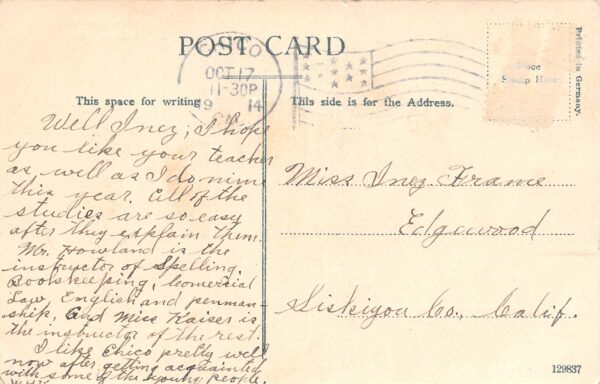 POST CARD
CHICO
OCT 17
11-30P
9 14
CAL.
Place
Stamp Here
Printed in Germany.
This space for writing
This side is for the Address.
Well Inez; I hope
you like your teacher
as well as I do mine
this year. All of the
studies are so easy
after they explain them.
Mr. Howland is the
instructor of Spelling,
Bookkeeping, Comercial
Law, English and penman-
ship, and Miss Kaiser is
the instructor of the rest.
I like Chico pretty well
now after getting acquainted
with some of the young people.
Miss Inez Frame
Edgewood
Siskiyou Co., Calif.
129837